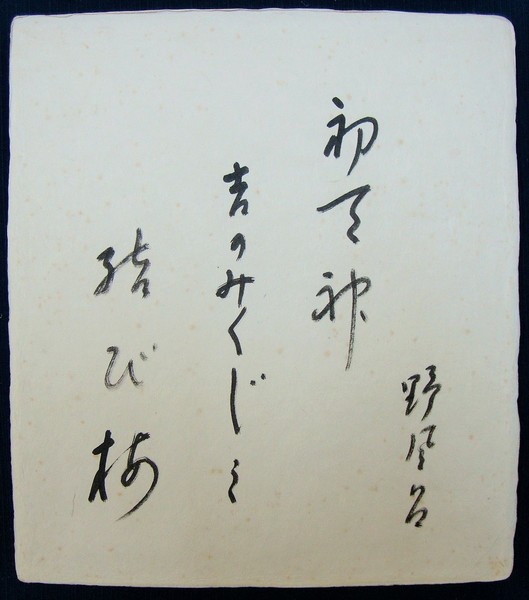 野風呂
初天神
吉のみくじ
結び梅